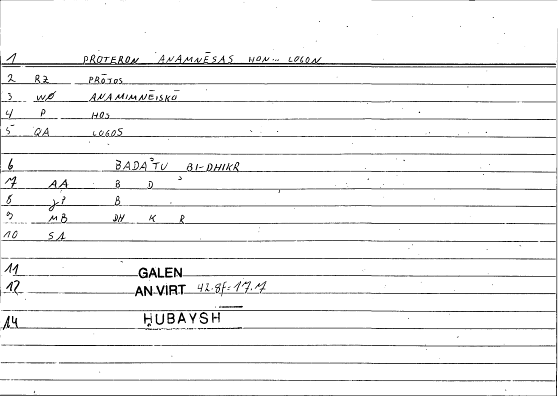 1 PROTERON ANAMNĒSAS HON... LOGON
2 RZ PRŌTOS
3 WØ ANAMIMNĒISKŌ
4 P HOS
5 QA LOGOS
6 BADA'TU BI-DHIKR
7 AA B D '
8 B
9 MB DH K R
10
11 GALEN
12 AN VIRT 42.8f=17.7
14 ḤUBAYSH